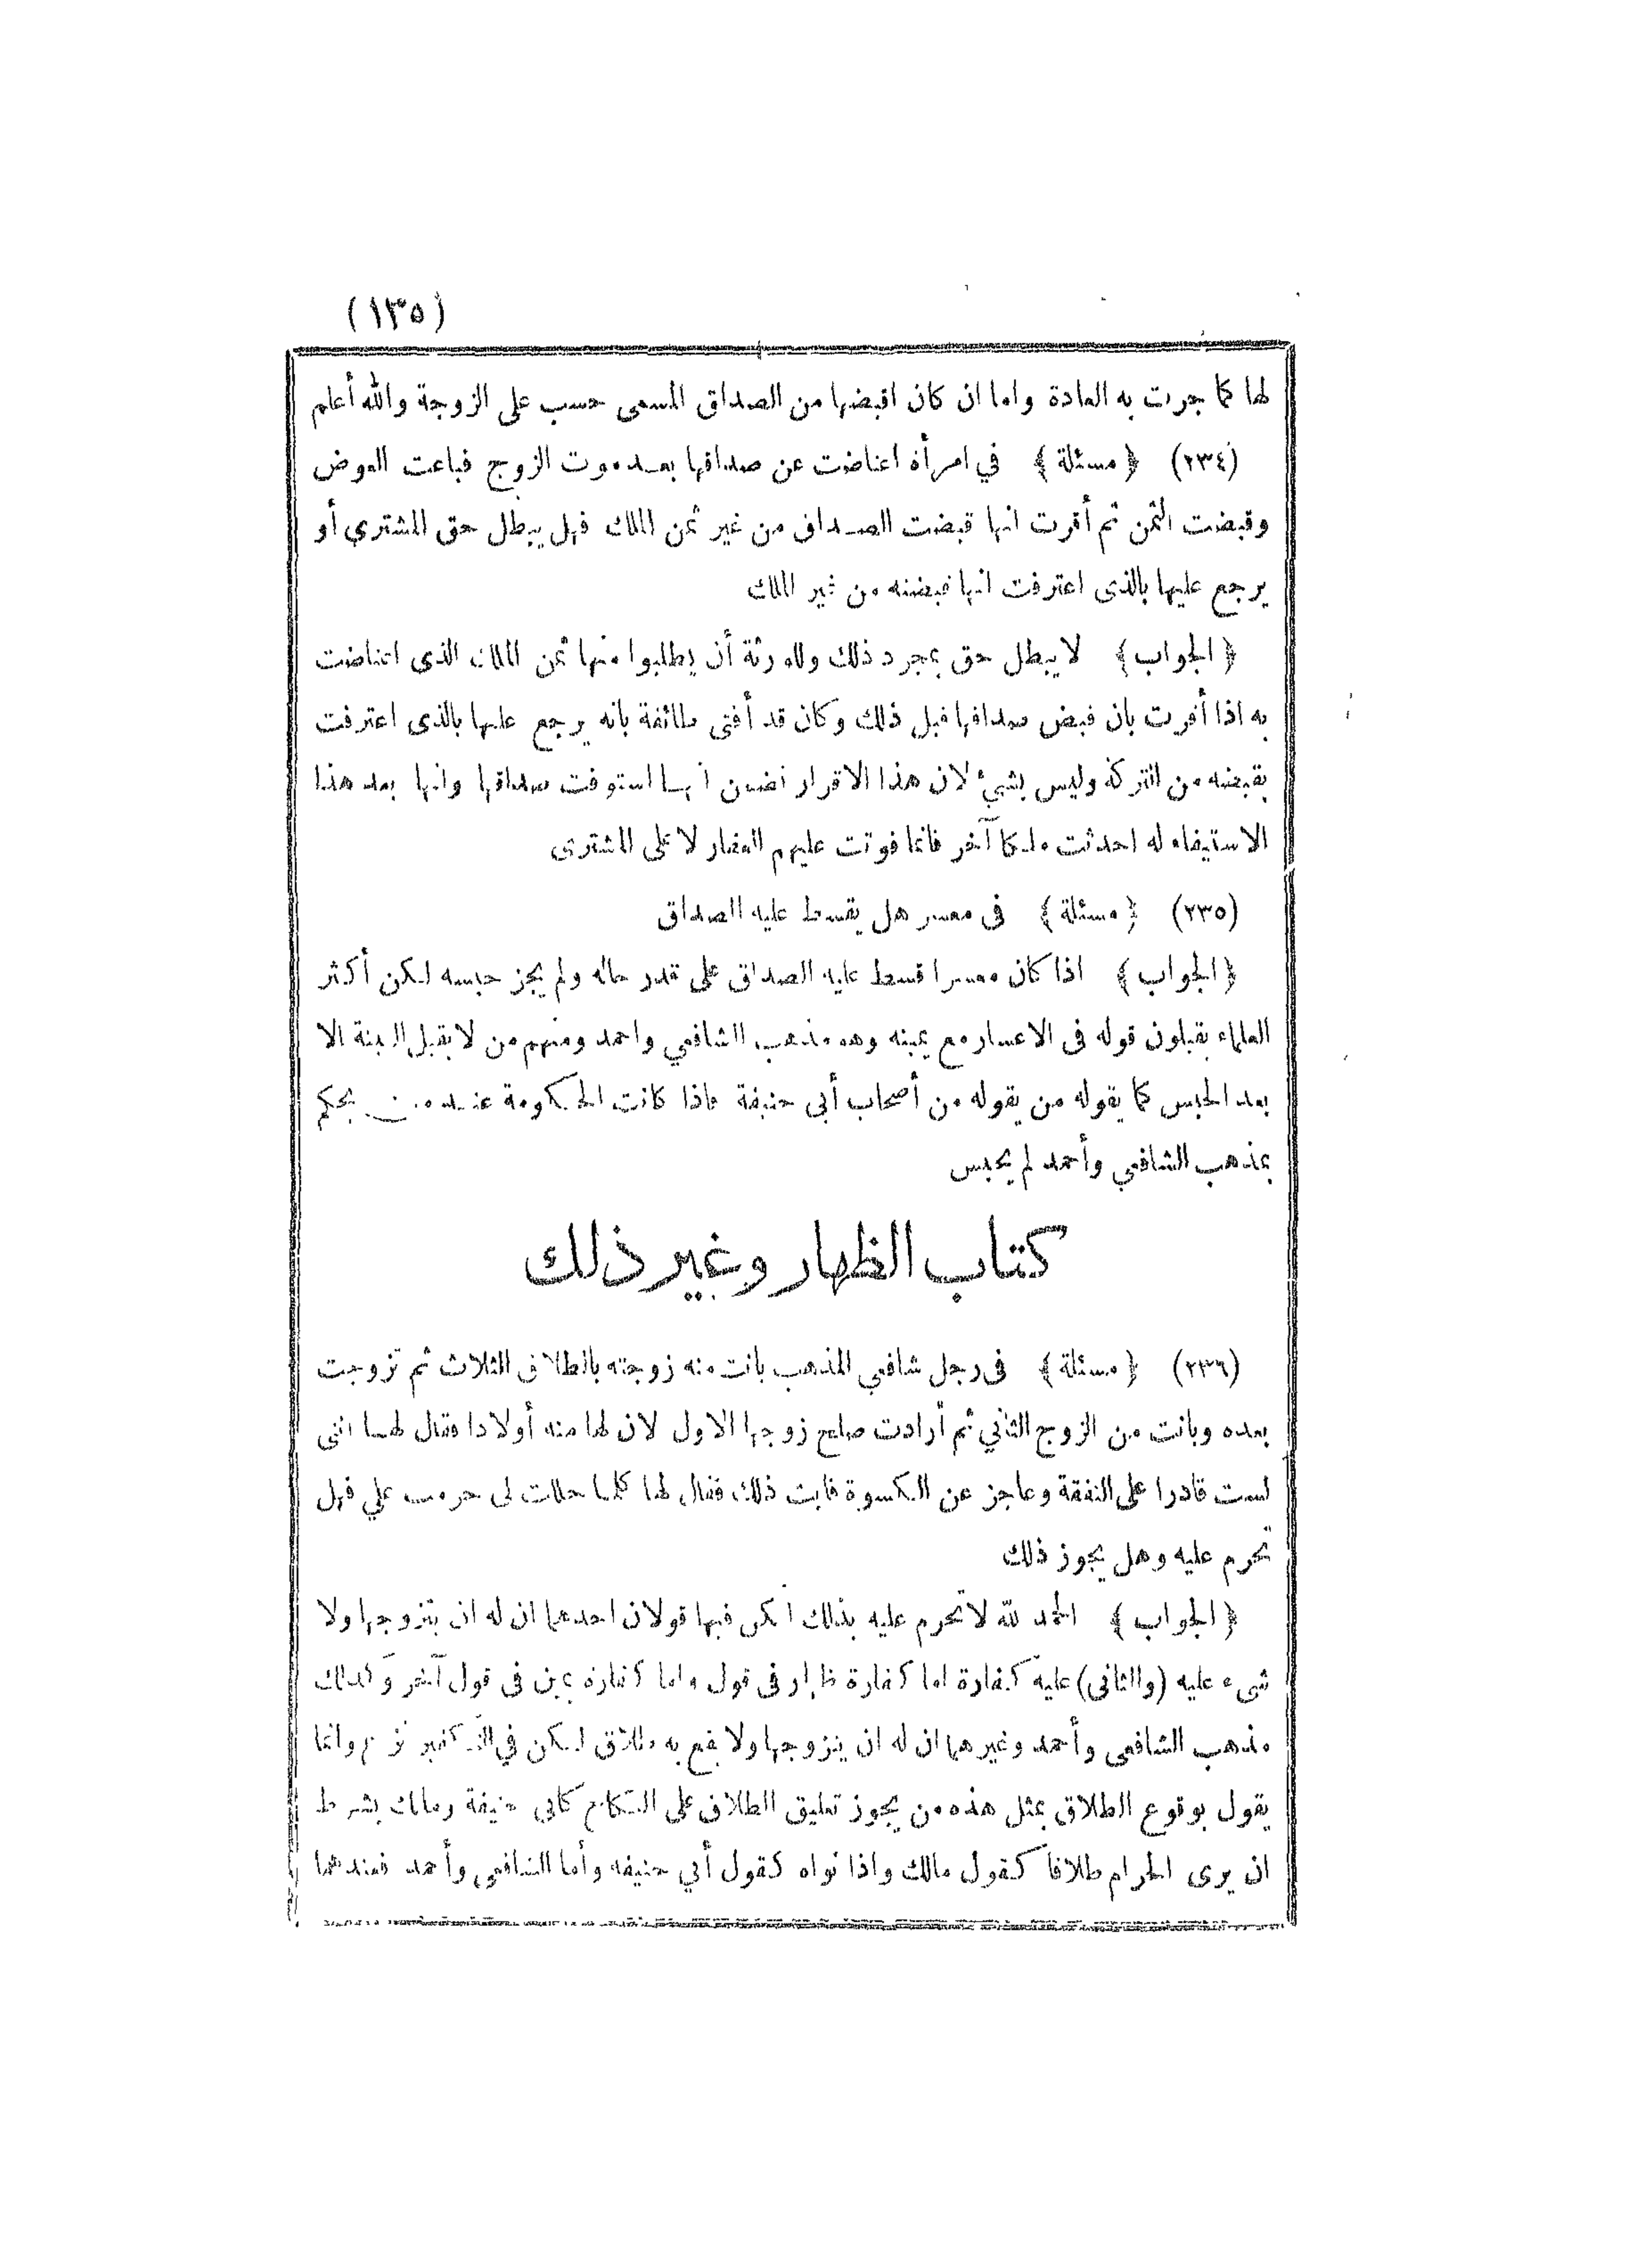 (١٣٥)
لها كما جرت به العادة واما ان كان اقبضها من الصداق المسمى حسب على الزوجة والله أعلم
(٢٣٤) ﴿ مسئلة ﴾ في امرأة اعتاضت عن صداقها بعد موت الزوج فباعت العوض
وقبضت الثمن ثم أقرت انها قبضت الصداق من غير ثمن الملك فهل يبطل حق المشتري أو
يرجع عليها بالذى اعترفت انها قبضته من غير الملك
﴿ الجواب ﴾ لا يبطل حق بمجرد ذلك وللورثة أن يطلبوا منها ثمن الملك الذى اعتاضت
به اذا أقرت بان قبض صداقها قبل ذلك وكان قد أفتى طائفة بانه يرجع عليها بالذى اعترفت
بقبضه من التركة وليس بشيئ لان هذا الاقرار تضمن انها استوفت صداقها وانها بعد هذا
الاستيفاء له احدثت ملكا آخر فانما فوتت عليهم العقار لا على المشترى
(٢٣٥) ﴿ مسئلة ﴾ فى معسر هل يقسط عليه الصداق
﴿ الجواب ﴾ اذا كان معسرا قسط عليه الصداق على قدر حاله ولم يجز حبسه لكن أكثر
العلماء يقبلون قوله فى الاعسار مع يمينه وهو مذهب الشافعي واحمد ومنهم من لا يقبل البينة الا
بعد الحبس كما يقوله من يقوله من أصحاب أبى حنيفة فاذا كانت الحكومة عند من يحكم
بمذهب الشافعي وأحمد لم يحبس
كتاب الظهار وغير ذلك
(٢٣٦) ﴿ مسئلة ﴾ فى رجل شافعي المذهب بانت منه زوجته بالطلاق الثلاث ثم تزوجت
بعده وبانت من الزوج الثاني ثم أرادت صلح زوجها الاول لان لها منه أولادا فقال لها اننى
لست قادرا على النفقة وعاجز عن الكسوة فابت ذلك فقال لها كلما حللت لى حرمت علي فهل
تحرم عليه وهل يجوز ذلك
﴿ الجواب ﴾ الحمد لله لا تحرم عليه بذلك لكن فيها قولان احدهما ان له ان يتزوجها ولا
شىء عليه (والثانى) عليه كفارة اما كفارة ظهار فى قول واما كفارة يمين فى قول آخر وكذلك
مذهب الشافعى وأحمد وغيرهما ان له ان يتزوجها ولا يقع به طلاق لكن في التكفير نزاع وانما
يقول بوقوع الطلاق بمثل هذه من يجوز تعليق الطلاق على النكاح كابي حنيفة ومالك بشرط
ان يرى الحرام طلاقا كقول مالك واذا نواه كقول أبي حنيفة وأما الشافعى وأحمد فعندهما